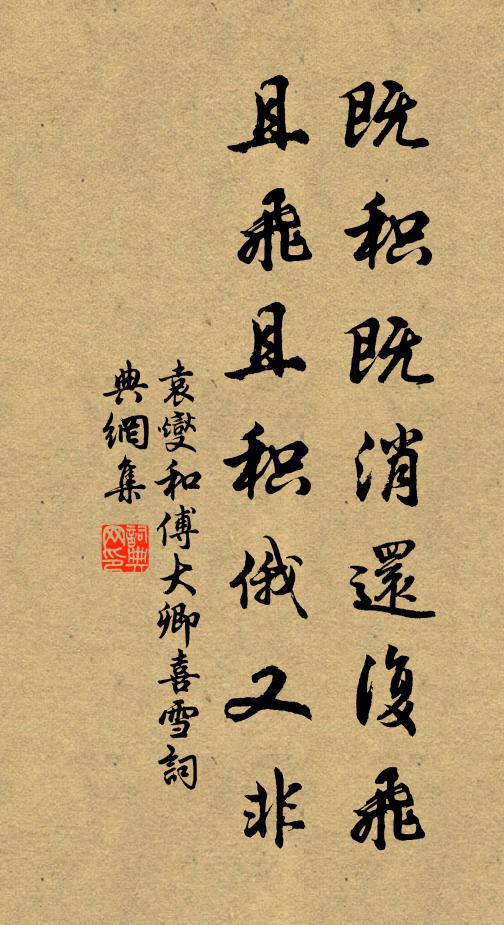 既积既消還復飛
且飛且积俄又非
袁燮和傅大卿喜雪詞
典網集
詞典網印